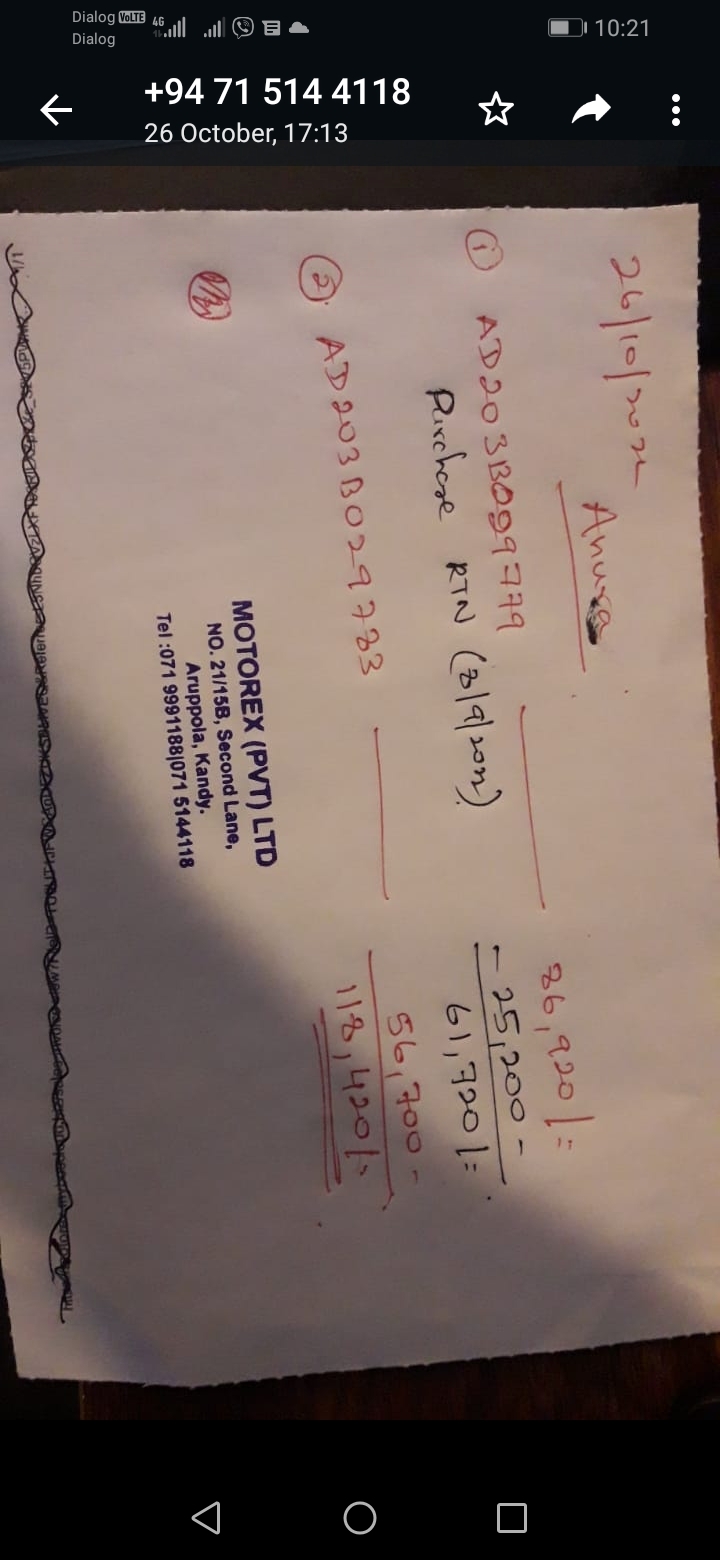 Dialog VoLTE 4G 10:21
Dialog
+94 71 514 4118
26 October, 17:13
26/10/2022
Anura
① AD203B029779 86,920/=
Purchase RTN (8/9/2022) - 25,200 -
61,720/=
② AD203B029783 56,700 -
118,420/=
MOTOREX (PVT) LTD
NO. 21/15B, Second Lane,
Aruppola, Kandy.
Tel :071 9991188|071 5144118